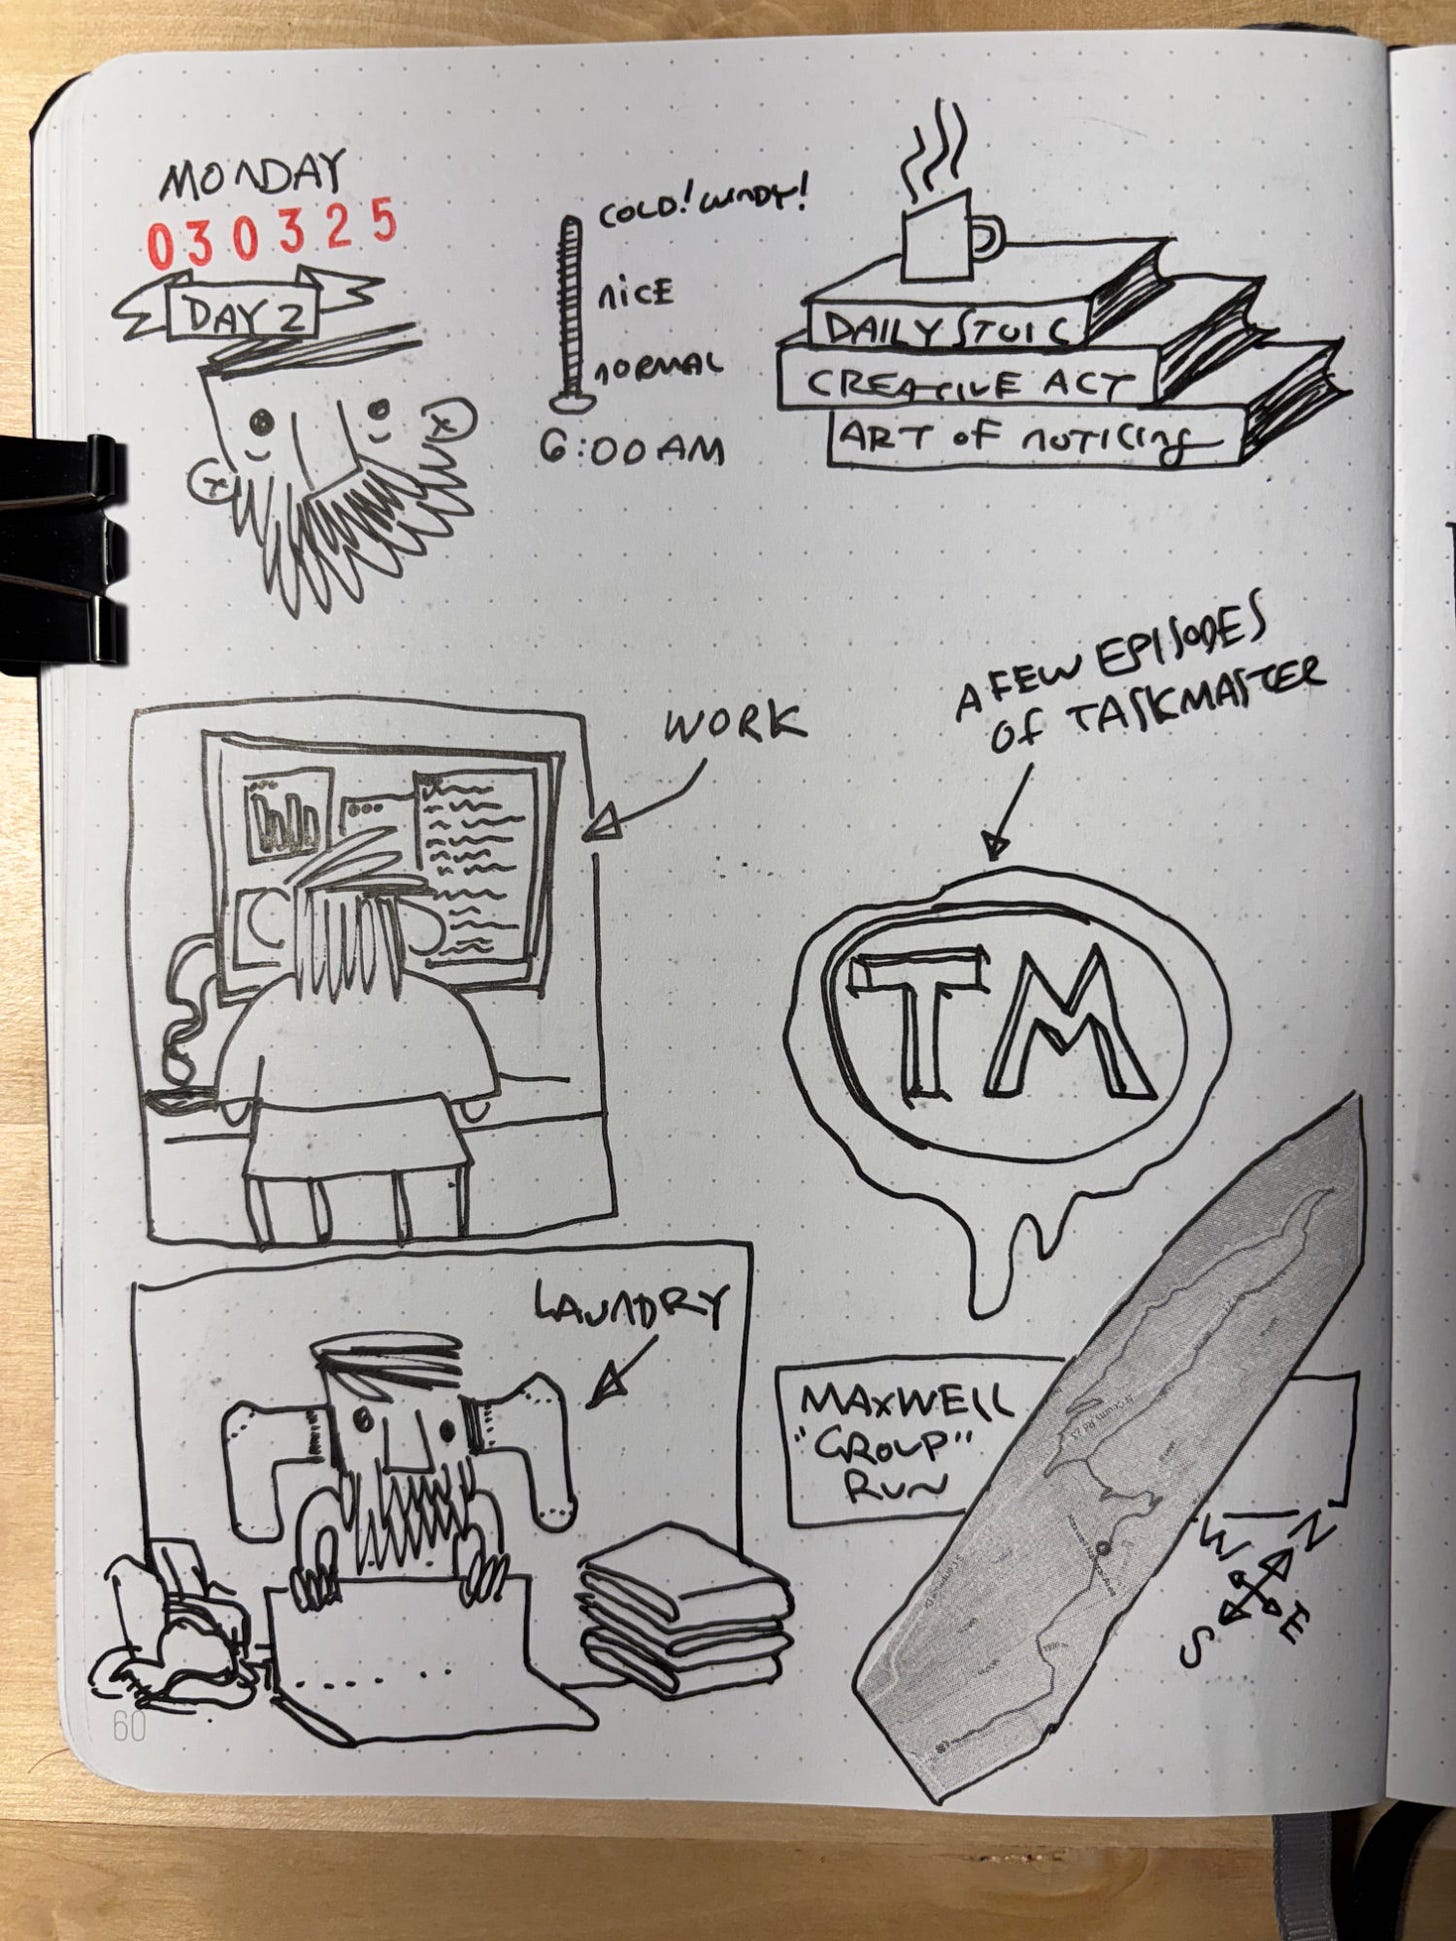 MONDAY
030325
DAY 2
COLD! WINDY!
NICE
NORMAL
6:00 AM
DAILY STOIC
CREATIVE ACT
ART OF NOTICING
WORK
A FEW EPISODES
OF TASKMASTER
TM
LAUNDRY
MAXWELL
"GROUP"
RUN
N
W
E
S
60